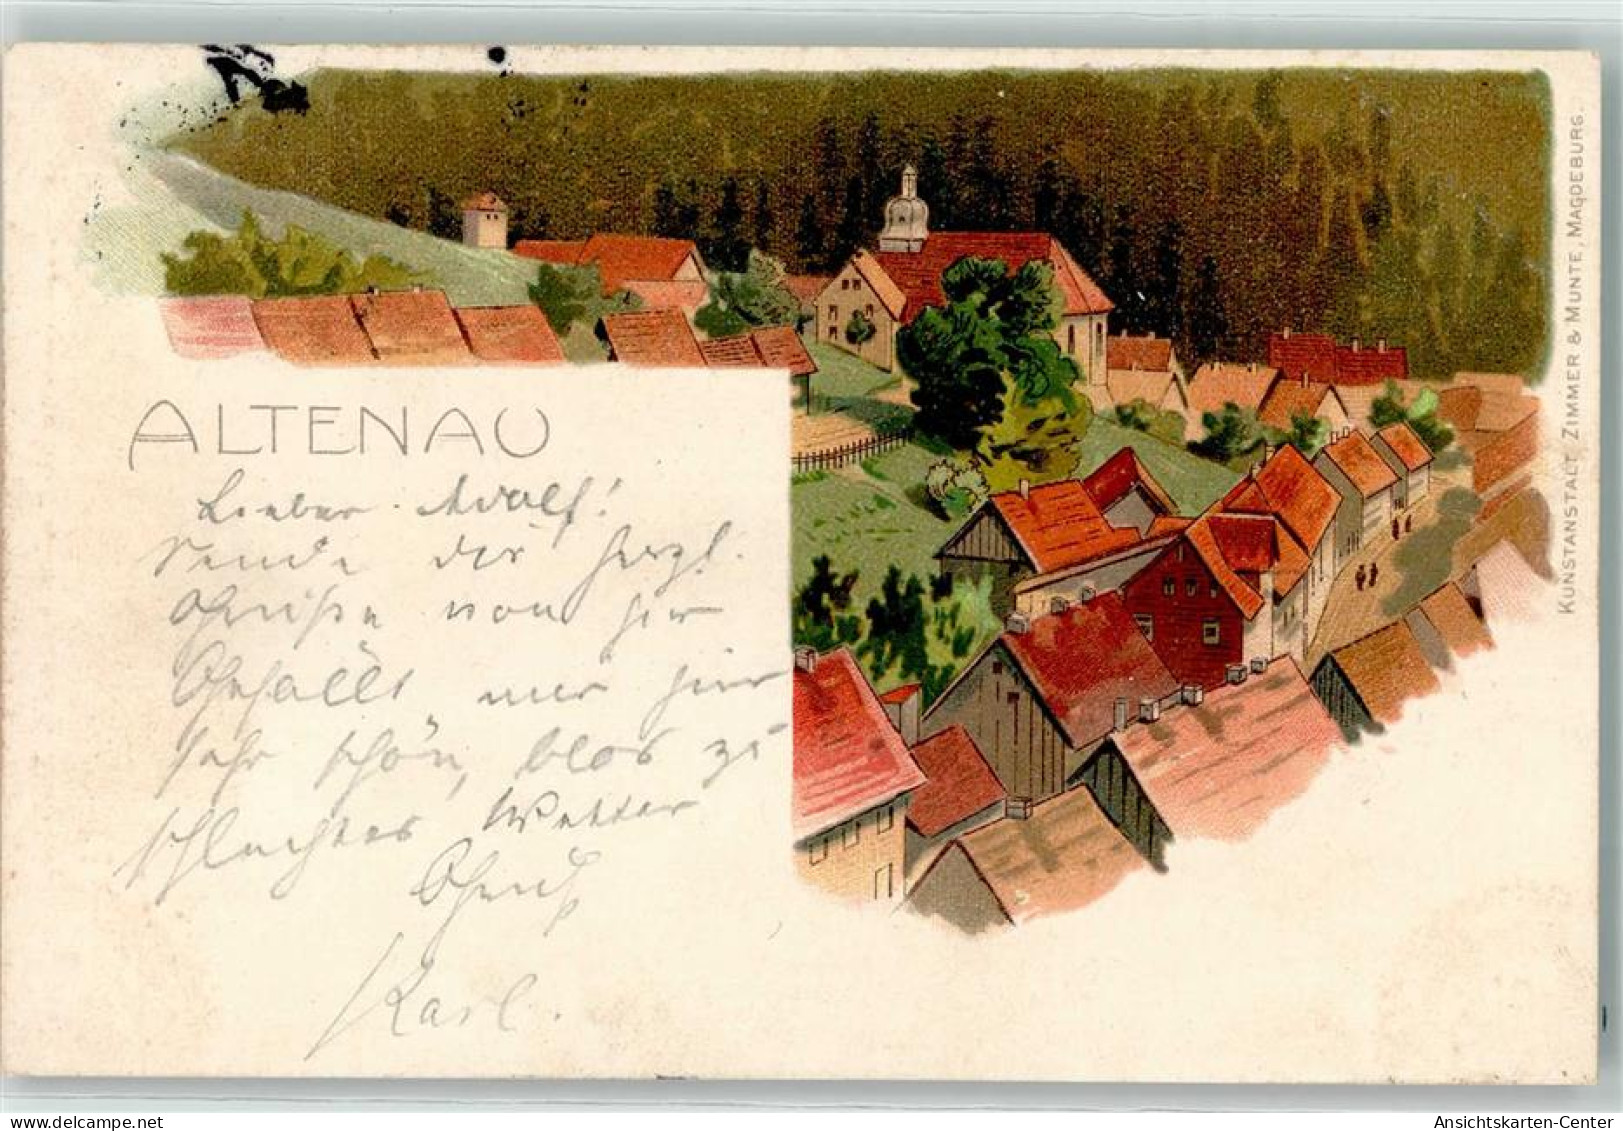 ALTENAU
Lieber Adolf!
Sende dir herzl.
Grüße von hir
Gefällt mir hier
sehr schön, blos zu
schlechtes Wetter
Gruß
Karl.
KUNSTANSTALT ZIMMER & MUNTE, MAGDEBURG.
delcampe.net
Ansichtskarten-Center